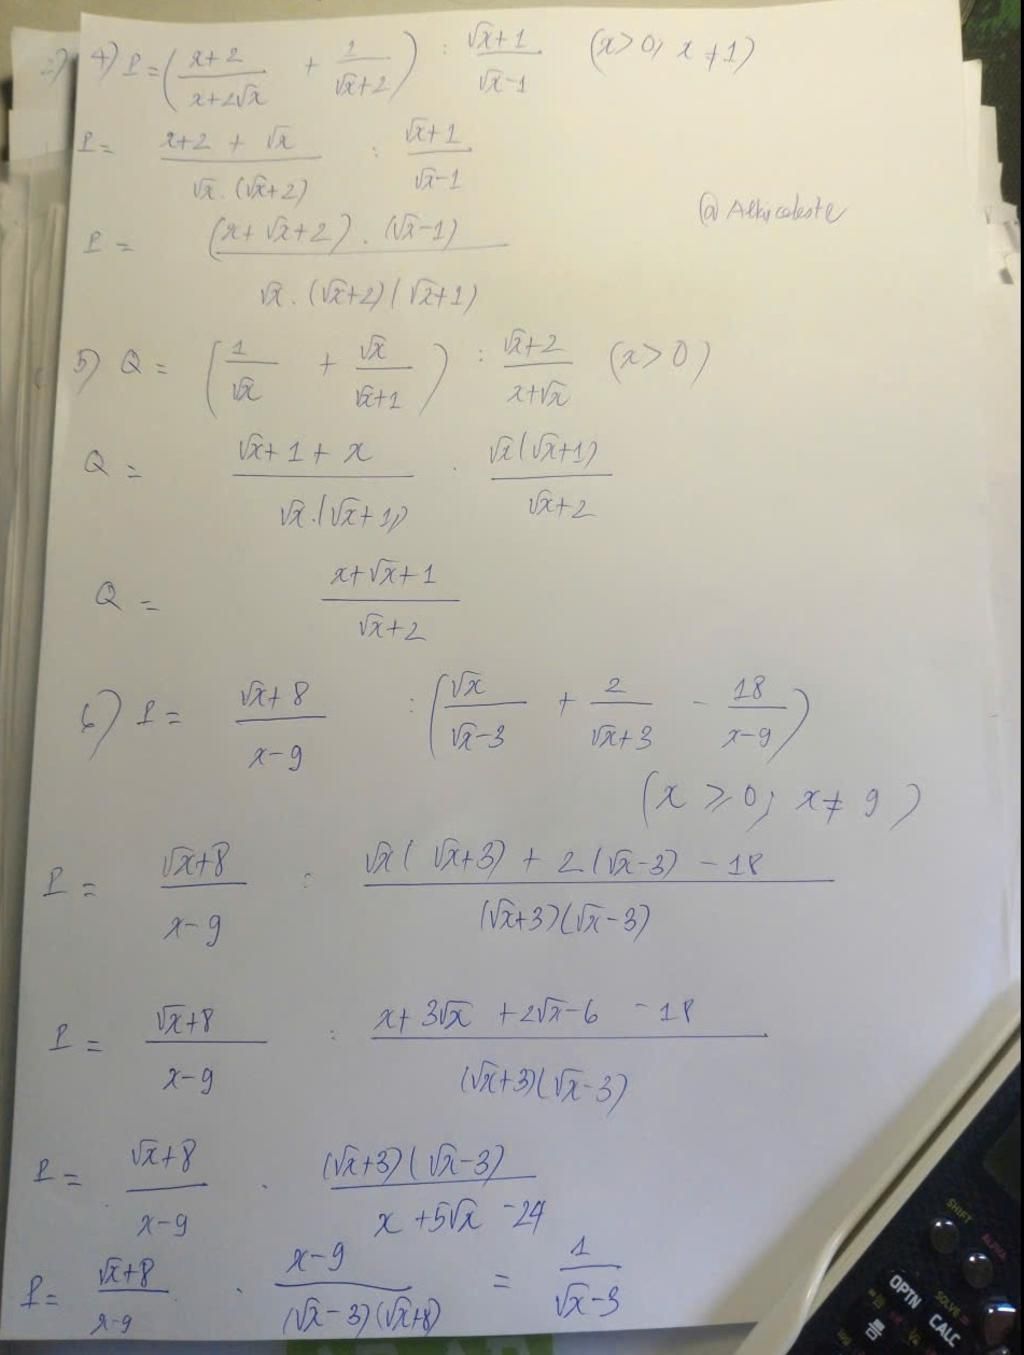 4) P = ( (x+2)/(x+2√x) + 1/(√x+2) ) : (√x+1)/(√x-1) (x>0; x≠1)
P = (x+2 + √x)/(√x.(√x+2)) : (√x+1)/(√x-1)
@Albiceleste
P = ((x+√x+2).(√x-1))/(√x.(√x+2)(√x+1))
5) Q = ( 1/√x + √x/(√x+1) ) : (√x+2)/(x+√x) (x>0)
Q = (√x+1+x)/(√x.(√x+1)) . (√x(√x+1))/(√x+2)
Q = (x+√x+1)/(√x+2)
6) P = (√x+8)/(x-9) : ( √x/(√x-3) + 2/(√x+3) - 18/(x-9) )
(x ≥ 0; x≠9)
P = (√x+8)/(x-9) : (√x(√x+3) + 2(√x-3) - 18)/((√x+3)(√x-3))
P = (√x+8)/(x-9) : (x+3√x+2√x-6-18)/((√x+3)(√x-3))
P = (√x+8)/(x-9) . ((√x+3)(√x-3))/(x+5√x-24)
P = (√x+8)/(x-9) . (x-9)/((√x-3)(√x+8)) = 1/(√x-3)
SHIFT
ALPHA
OPTN
SOLVE
CALC